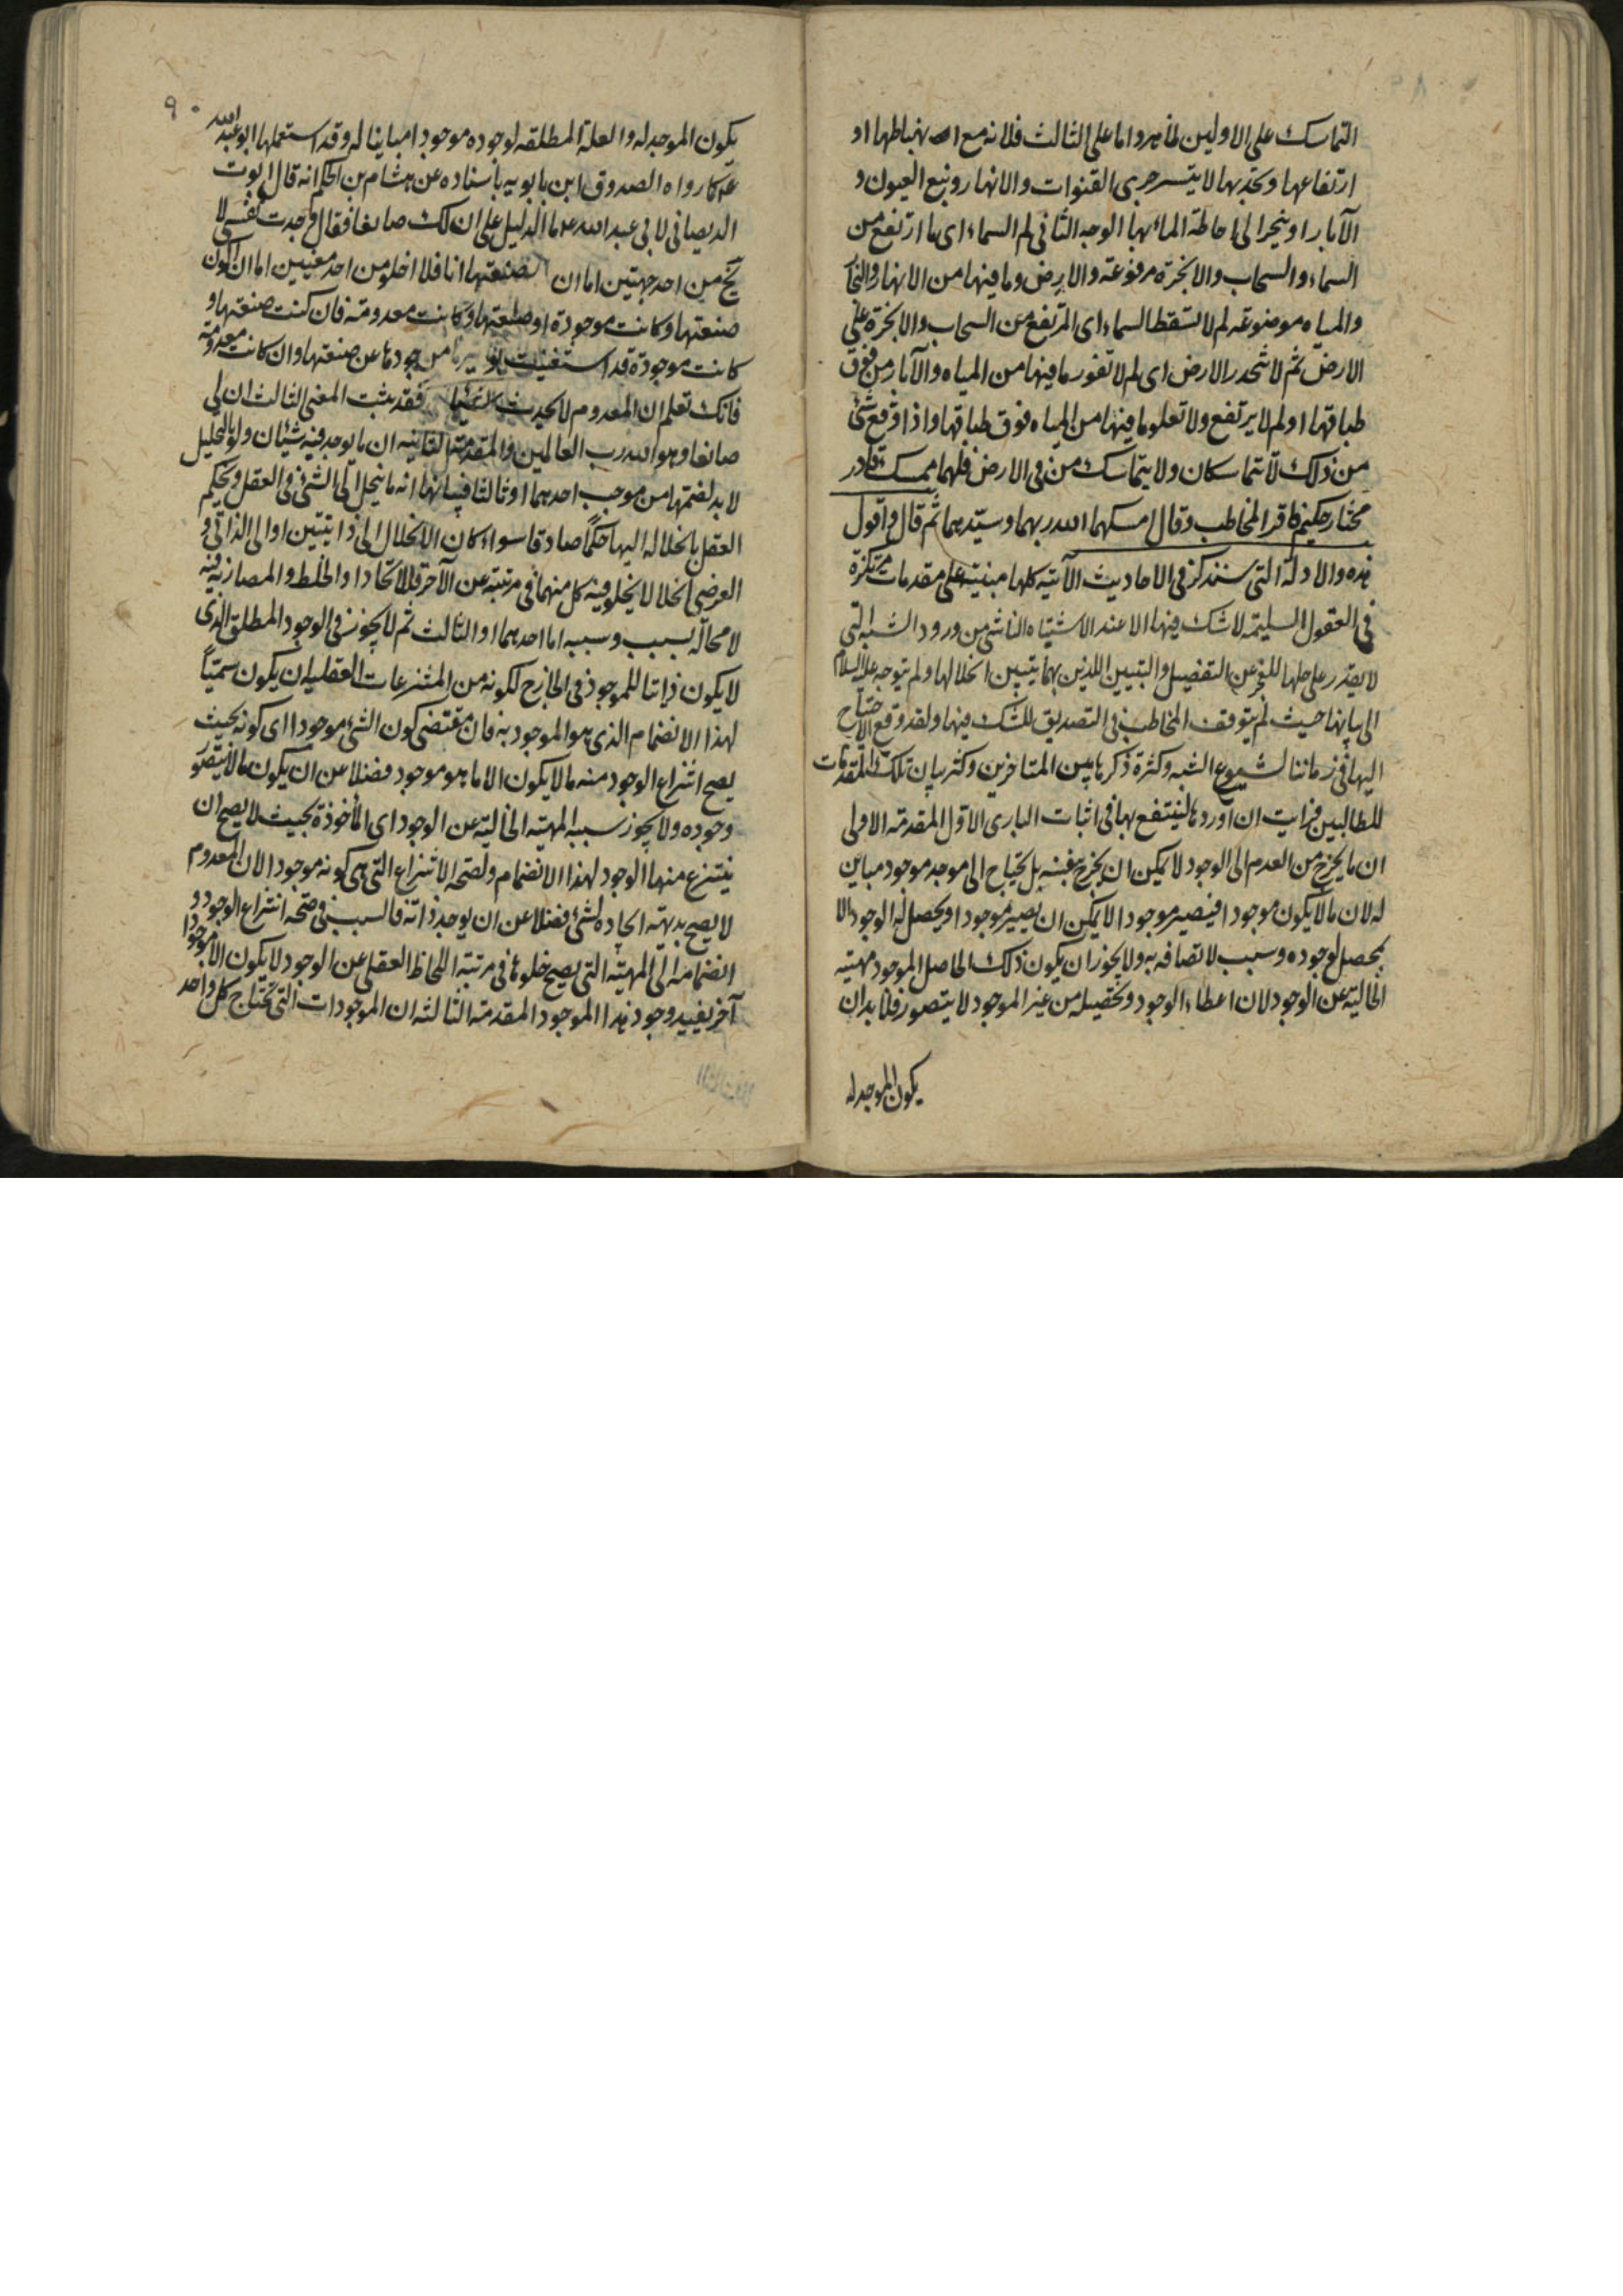 التماسك على الاولين لما مر واما على الثالث فلانه مع انضباطها او
ارتفاعها وتحدبها لا يتيسر جرى القنوات والانهار ونبع العيون و
الآبار او ينجر الى احاطة الماء بها الوجه الثانى لم السماء اى ما ارتفع من
السماء والسحاب والابخرة مرفوعة والارض وما فيها من الانهار والبحار
والمياه موضوعة لم لا تسقط السماء اى المرتفع من السحاب والابخرة على
الارض ثم لا تنحدر الارض اى لم لا تغور ما فيها من المياه والآبار من فوق
طباقها او لم لا يرتفع ولا تعلو ما فيها من المياه فوق طباقها واذا وقع شئ
من ذلك لا تتماسكان ولا يتماسك من فى الارض فلهما ممسك قادر
مختار حكيم فاقر المخاطب وقال امسكهما الله ربهما وسيدهما ثم قال واقول
هذه والادلة التى سنذكر فى الاحاديث الآتية كلها مبنية على مقدمات مرتكزة
فى العقول السليمة لا شك فيها الا عند الاشتباه الناشى من ورود الشبه التى
لا يقدر على حلها للعجز عن التفصيل والتبيين اللذين بهما يتبين انحلالها ولم يتوجه عليه السلام
الى بيانها حيث لم يتوقف المخاطب فى التصديق للشك فيها ولقد وقع الاحتياج
اليها فى زماننا لشيوع الشبه وكثرة ذكرها بين المتاخرين وكثر بيان تلك المقدمات
للطالبين فرايت ان اوردها لينتفع بها فى اثبات البارى الاول المقدمة الاولى
ان ما يخرج من العدم الى الوجود لا يمكن ان يخرج بنفسه بل يحتاج الى موجد موجود مباين
له لان ما لا يكون موجودا فيصير موجودا لا يمكن ان يصير موجودا ويحصل له الوجود الا
بمحصل لوجوده وسبب لاتصافه به ولا يجوز ان يكون ذلك الحاصل الموجود مهيته
الخالية عن الوجود لان اعطاء الوجود وتحصيله من غير الموجود لا يتصور فلا بد ان
يكون الموجد له
٩٠
يكون الموجد له والعلة المطلقه لوجوده موجودا مباينا له وقد استعملها ابو عبد الله
ع كما رواه الصدوق ابن بابويه باسناده عن هشام بن الحكم انه قال ابو
الديصانى لابى عبد الله ع ما الدليل على ان لك صانعا فقال وجدت نفسى لا
تخ من احد جهتين اما ان صنعتها انا فلا اخلو من احد معنيين اما ان اكون
صنعتها وكانت موجودة او صنعتها وكانت معدومة فان كنت صنعتها و
كانت موجودة قد استغنيت بوجودها عن صنعتها وان كانت معدومة
فانك تعلم ان المعدوم لا يحدث شيئا فقد ثبت المعنى الثالث ان لى
صانعا وهو الله رب العالمين والمقدمة الثانيه ان ما يوجد فيه شيئان ولو بالتحليل
لا بد لضمهما من موجب احدهما او ثالثا فبيانها انه ما ينحل الى الشئ فى العقل ويحكم
العقل بانحلاله اليها حكما صادقا سواء كان الانحلال الى ذاتيين او الى الذاتى و
العرضى انحلالا يخلو فيه كل منهما فى مرتبة عن الآخر فللاتحاد او الخلط والمصاربة فيه
لا محالة بسبب وسببه اما احدهما او الثالث ثم لا يجوز فى الوجود المطلق الذى
لا يكون ذاتا للموجود فى الخارج لكونه من المنتزعات العقلية ان يكون سببا
لهذا الانضمام الذى هو الموجود به فان مقتضى كون الشئ موجودا اى كونه بحيث
يصح انتزاع الوجود منه ما لا يكون الا ما هو موجود فضلا عن ان يكون ما لا يتصور
وجوده ولا يجوز سببه المهية الخالية عن الوجود اى المأخوذة بحيث لا يصح ان
ينتزع منها الوجود لهذا الانضمام ولصحة الانتزاع التى هى كونه موجودا لان المعدوم
لا يصح بديهة ايجاده لشئ فضلا عن ان يوجد ذاته فالسبب فى صحة انتزاع الوجود و
انضمامه الى المهية التى يصح خلوها فى مرتبة اللحاظ العقلى عن الوجود لا يكون الا موجودا
آخر يفيد وجود هذا الموجود المقدمة الثالثه ان الموجودات التى تحتاج كل واحد